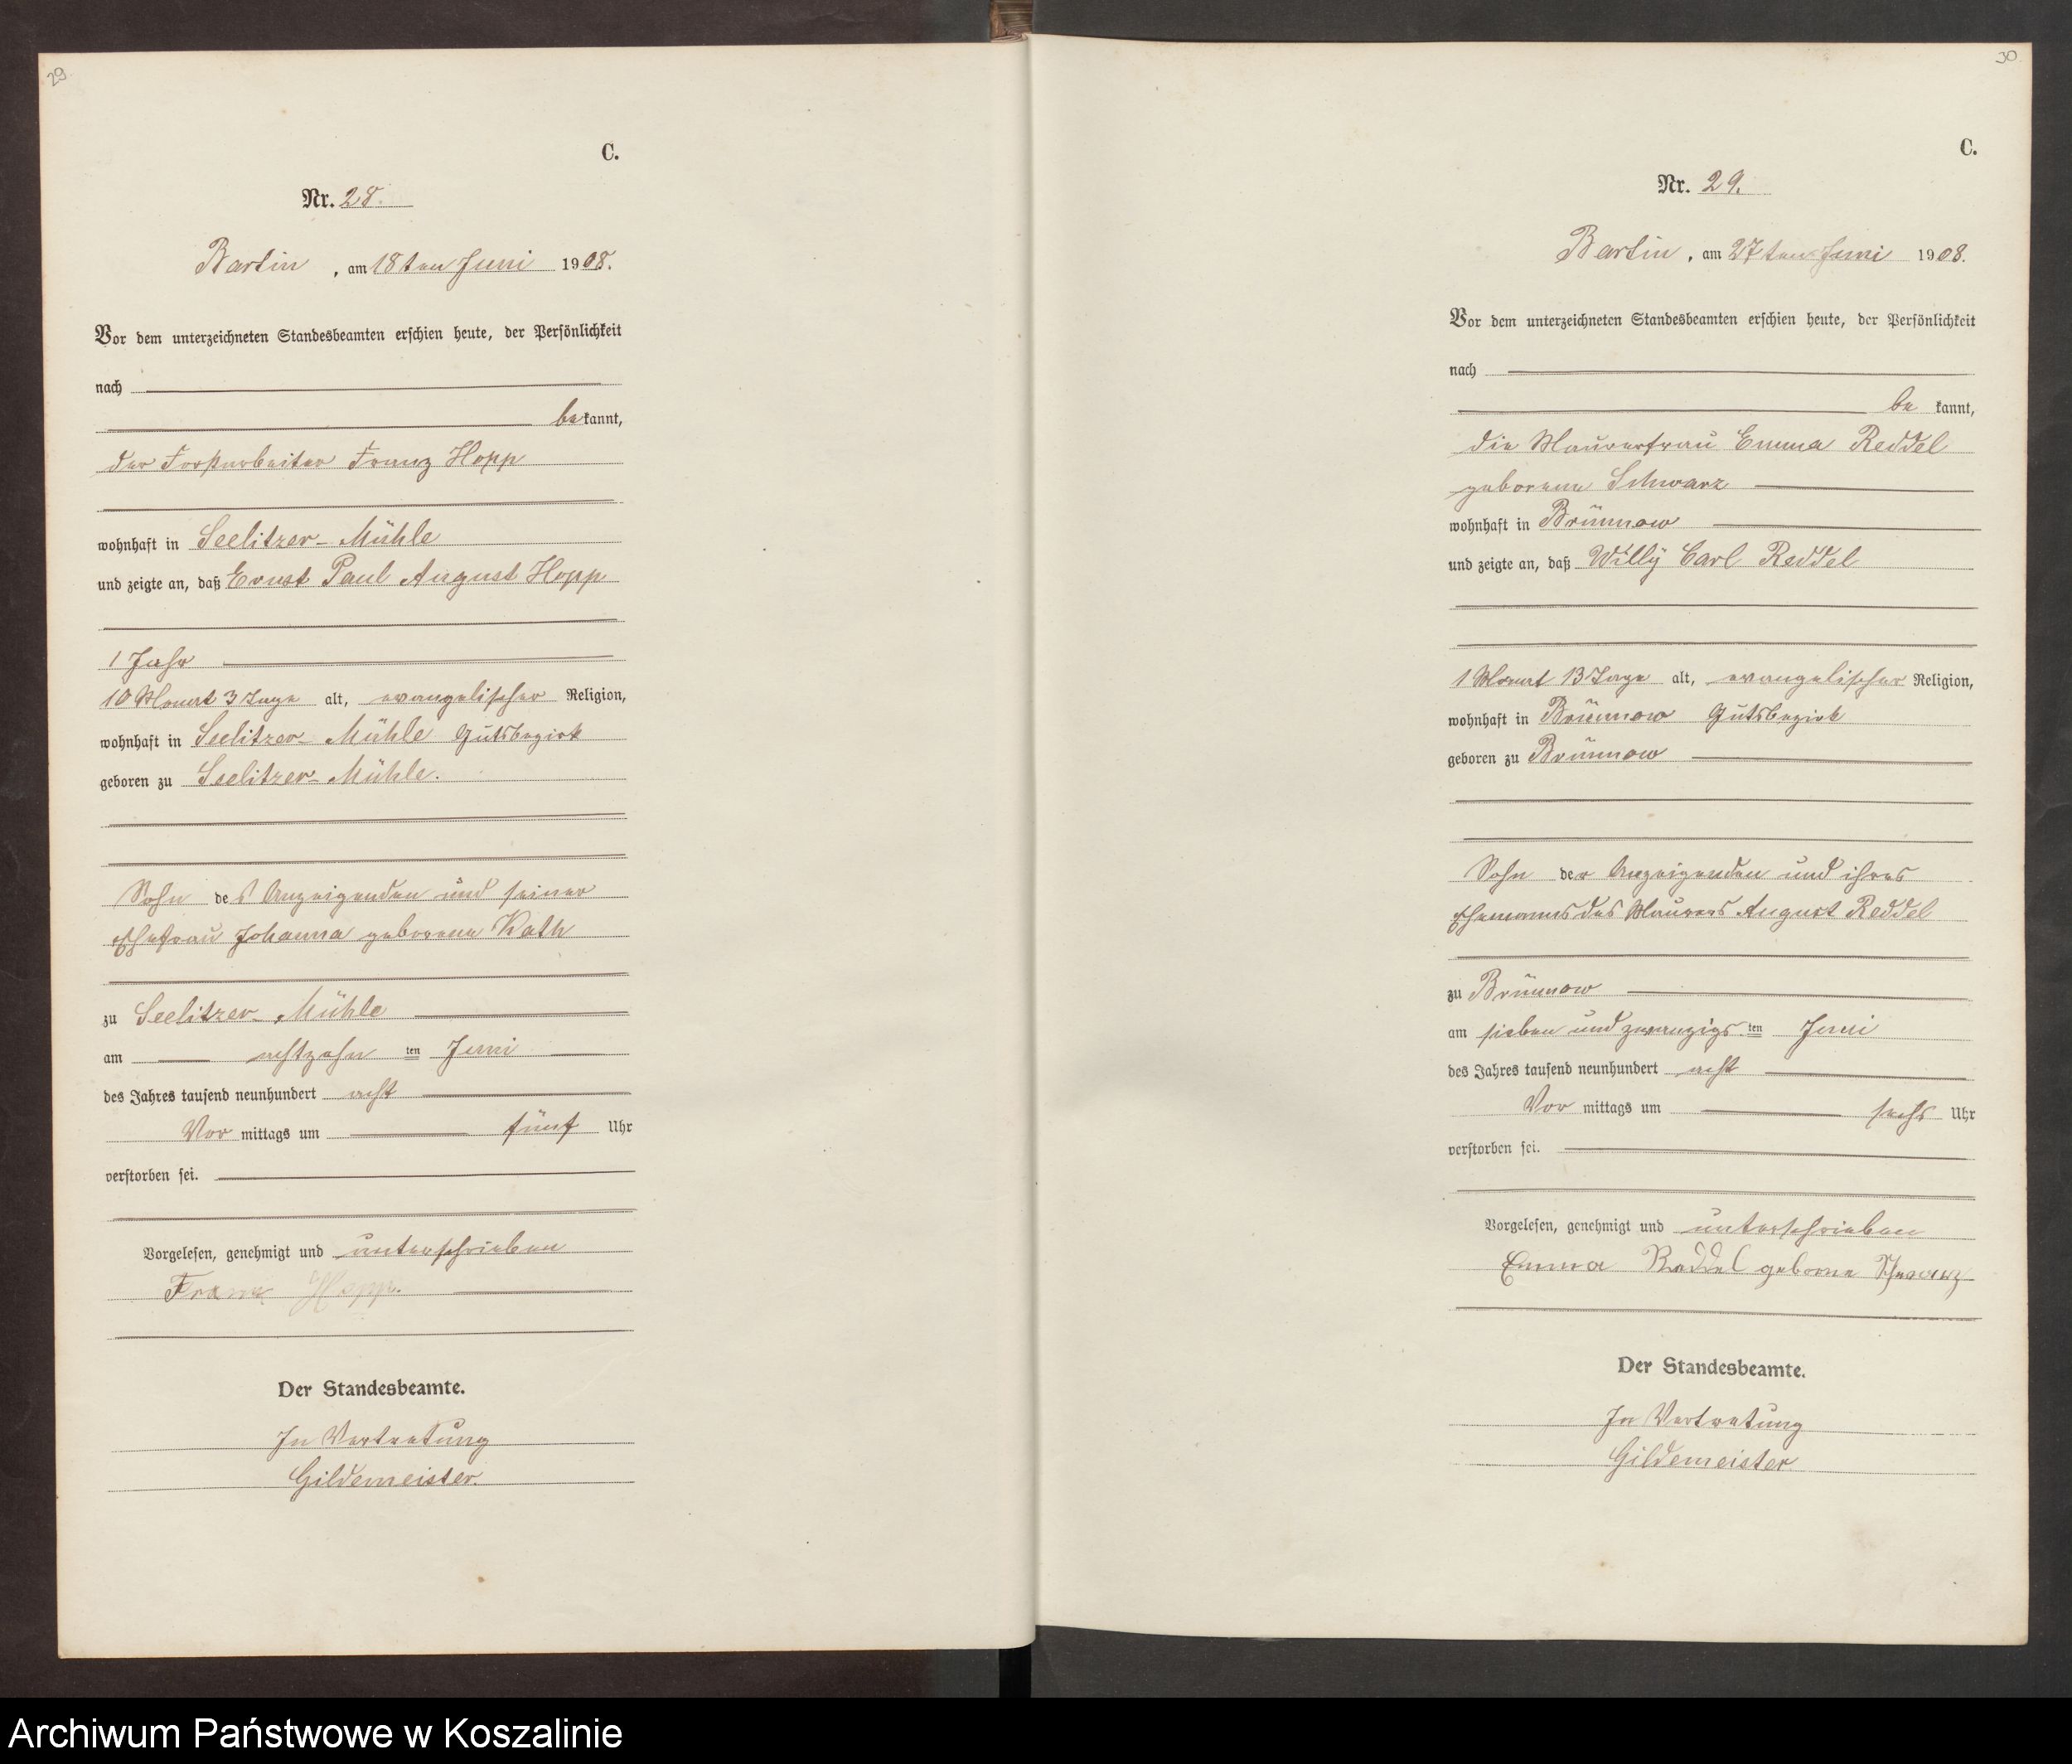 29
C.
Nr. 28.
Bartin, am 18ten Juni 1908.
Vor dem unterzeichneten Standesbeamten erschien heute, der Persönlichkeit
nach
bekannt,
der Forstarbeiter Franz Hopp
wohnhaft in Seelitzer-Mühle
und zeigte an, daß Ernst Paul August Hopp
1 Jahr
10 Monat 3 Tage alt, evangelischer Religion,
wohnhaft in Seelitzer-Mühle Gutsbezirk
geboren zu Seelitzer-Mühle.
Sohn des Anzeigenden und seiner
Ehefrau Johanna geborene Kath
zu Seelitzer-Mühle
am achtzehn ten Juni
des Jahres tausend neunhundert acht
Vor mittags um fünf Uhr
verstorben sei.
Vorgelesen, genehmigt und unterschrieben
Franz Hopp.
Der Standesbeamte.
In Vertretung
Gildemeister.
30
C.
Nr. 29.
Bartin, am 27ten Juni 1908.
Vor dem unterzeichneten Standesbeamten erschien heute, der Persönlichkeit
nach
be kannt,
die Maurerfrau Emma Reddel
geborene Schwarz
wohnhaft in Brünnow
und zeigte an, daß Willy Carl Reddel
1 Monat 13 Tage alt, evangelischer Religion,
wohnhaft in Brünnow Gutsbezirk
geboren zu Brünnow
Sohn der Anzeigenden und ihres
Ehemanns des Maurers August Reddel
zu Brünnow
am sieben und zwanzigs ten Juni
des Jahres tausend neunhundert acht
Vor mittags um sechs Uhr
verstorben sei.
Vorgelesen, genehmigt und unterschrieben
Emma Reddel geborne Schwarz
Der Standesbeamte.
In Vertretung
Gildemeister
Archiwum Państwowe w Koszalinie